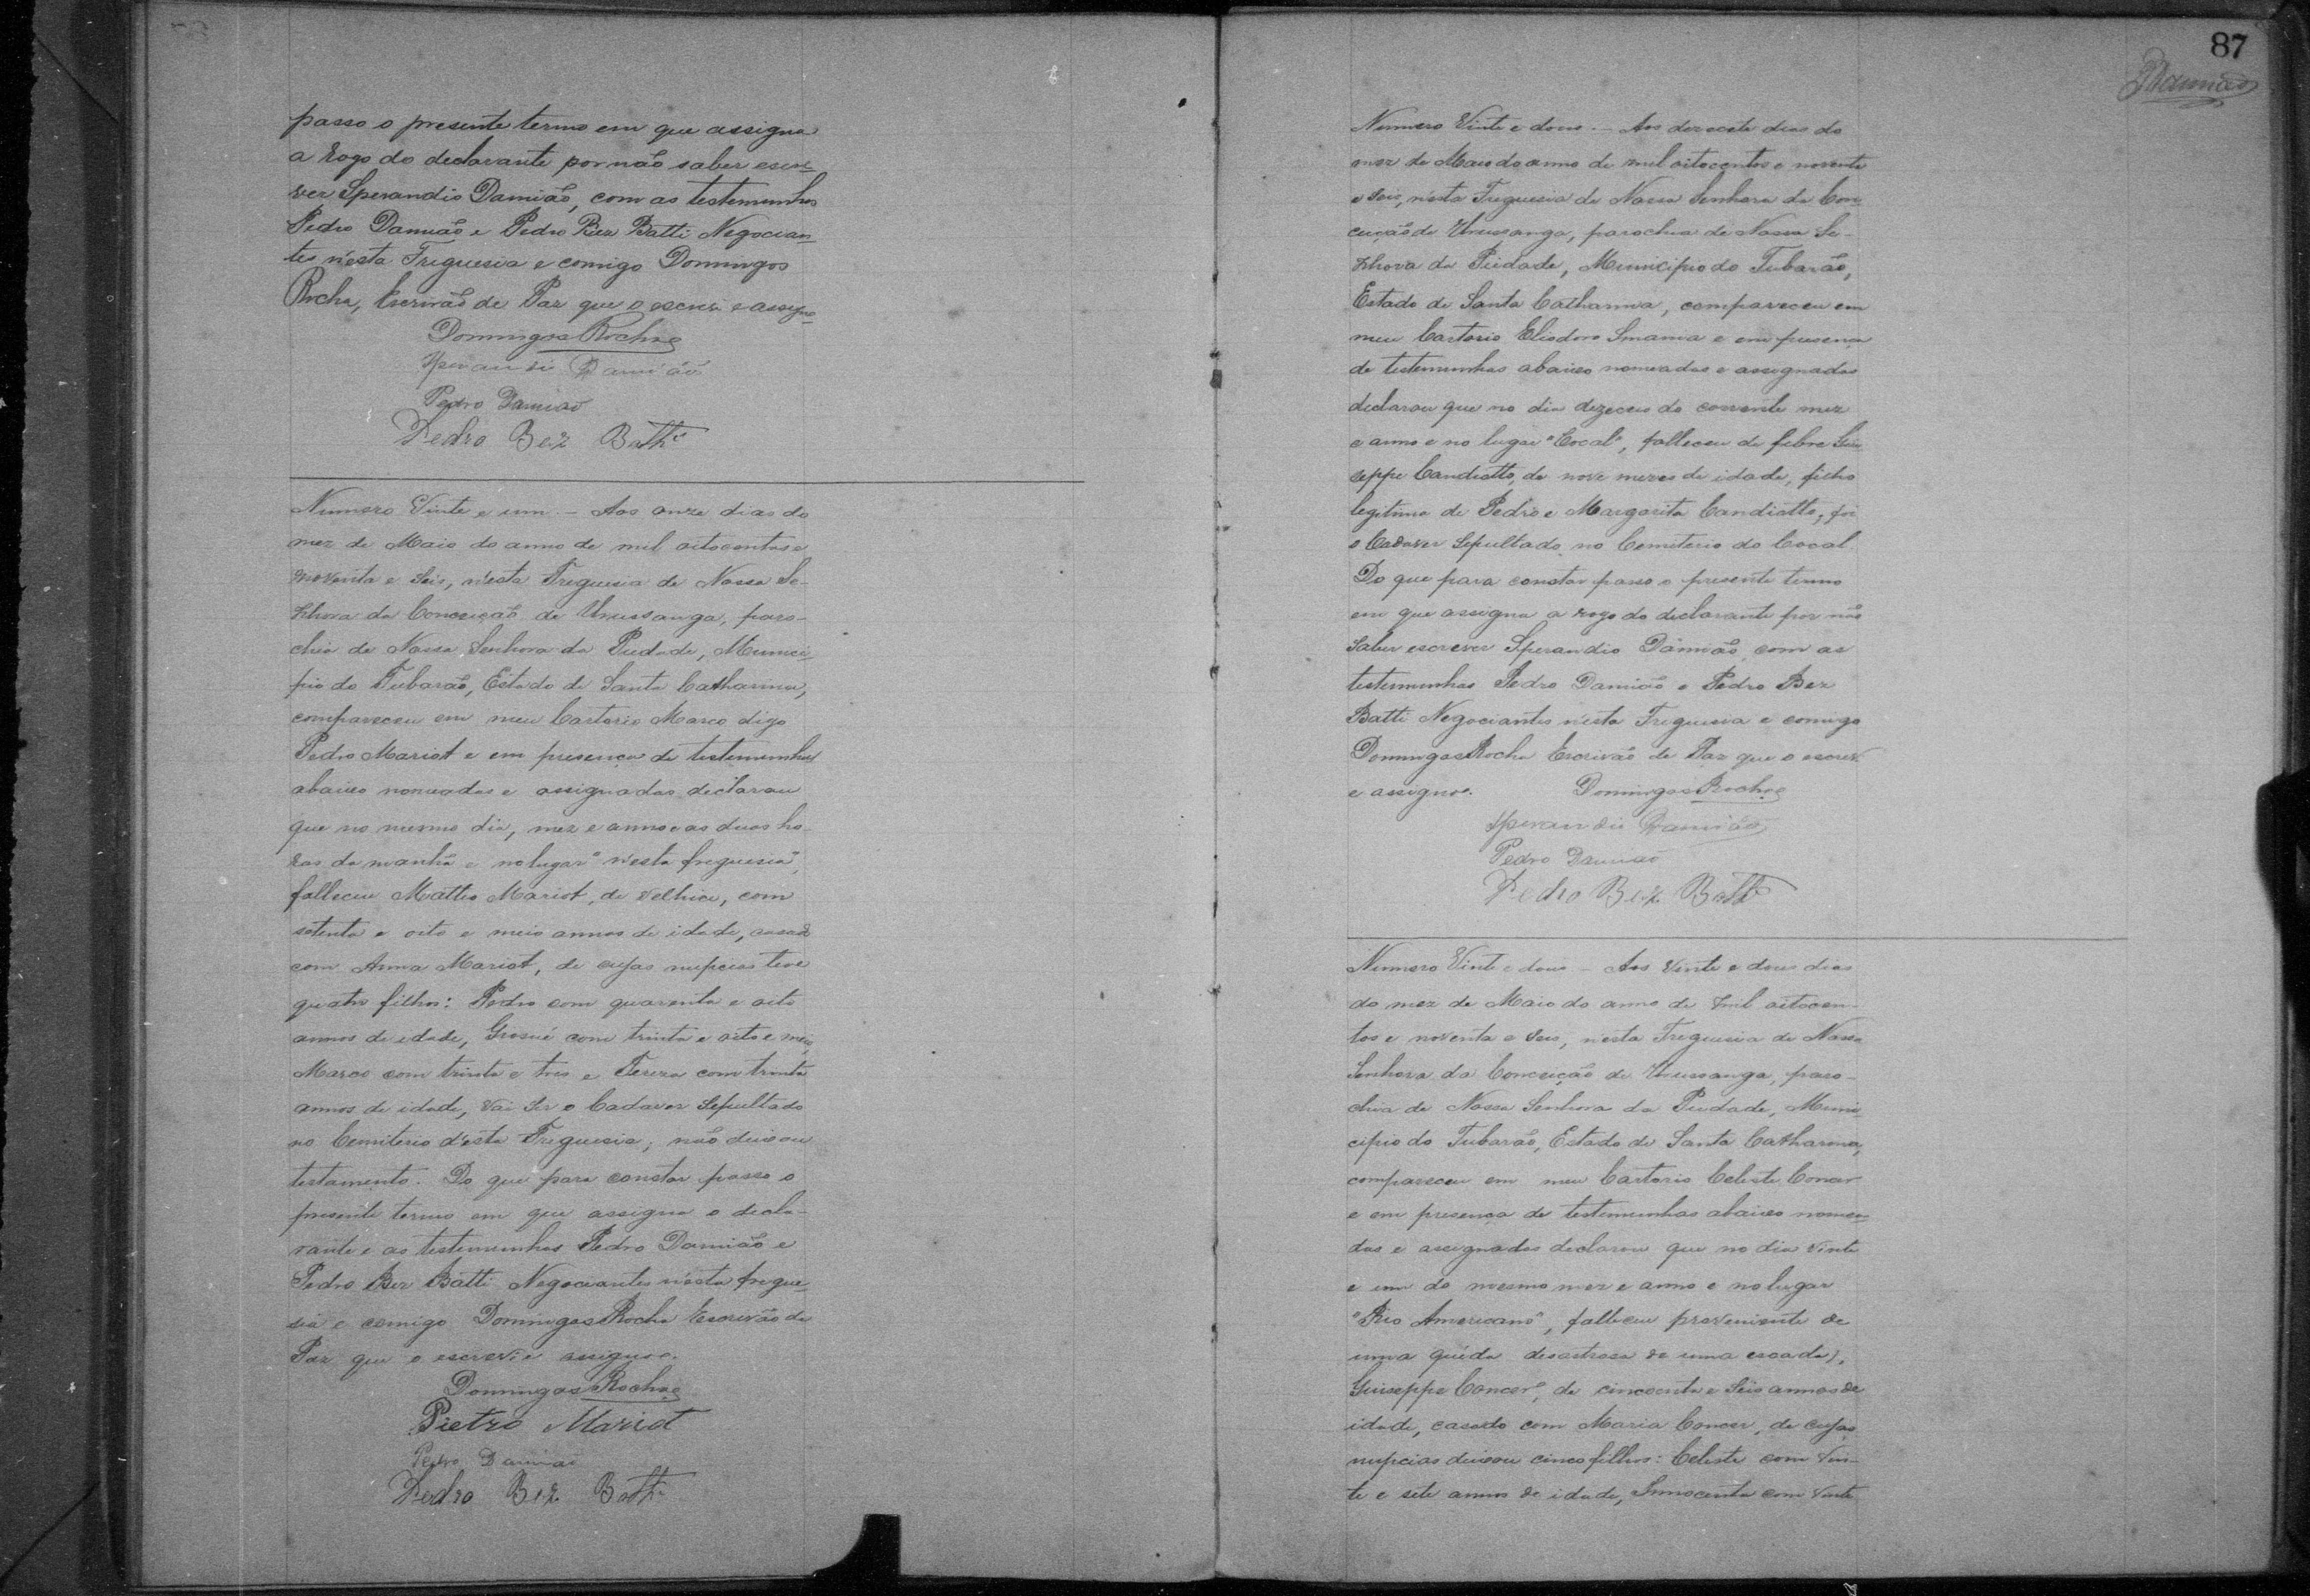 passo o presente termo em que assigna
a rogo do declarante por não saber escre-
ver Sperandio Damião, com as testemunhas
Pedro Damião e Pedro Bez Batti Negocian-
tes n'esta Freguesia e comigo Domingos
Rocha, Escrivão de Paz que o escrevi e assigno
Domingos Rocha
Sperandio Damião
Pedro Damião
Pedro Bez Batti
Numero Vinte e um. — Aos onze dias do
mez de Maio do anno de mil oitocentos e
noventa e seis, n'esta Freguesia de Nossa Se-
nhora da Conceição de Urussanga, paro-
chia de Nossa Senhora da Piedade, Munici-
pio do Tubarão, Estado de Santa Catharina,
compareceu em meu Cartorio Marco digo
Pedro Mariot e em presença de testemunhas
abaixo nomeadas e assignadas declarou
que no mesmo dia, mez e anno e as duas ho-
ras da manhã e no lugar "n'esta freguesia",
falleceu Matteo Mariot, de velhice, com
setenta e oito e meio annos de idade, casado
com Anna Mariot, de cujas nupcias teve
quatro filhos: Pedro com quarenta e oito
annos de idade, Giosué com trinta e oito e meio,
Marco com trinta e tres e Tereza com trinta
annos de idade, vai ser o Cadaver Sepultado
no Cemiterio d'esta Freguesia; não deixou
testamento. Do que para constar passo o
presente termo em que assigna o decla-
rante e as testemunhas Pedro Damião e
Pedro Bez Batti Negociantes n'esta fregue-
sia e comigo Domingos Rocha Escrivão de
Paz que o escrevi e assigno.
Domingos Rocha
Pietro Mariot
Pedro Damião
Pedro Bez Batti
87
Damião
Numero Vinte e dous. — Aos dezesete dias do
mez de Maio do anno de mil oitocentos e noventa
e seis, n'esta Freguesia de Nossa Senhora da Con-
ceição de Urussanga, parochia de Nossa Se-
nhora da Piedade, Municipio do Tubarão,
Estado de Santa Catharina, compareceu em
meu Cartorio Eliodoro Smania e em presença
de testemunhas abaixo nomeadas e assignadas
declarou que no dia dezeceis do corrente mez
e anno e no lugar "Cocal", falleceu de febre Giu-
seppe Candiotto, de nove mezes de idade, filho
legitimo de Pedro e Margarita Candiotto, foi
o Cadaver Sepultado no Cemiterio do Cocal.
Do que para constar passo o presente termo
em que assigna a rogo do declarante por não
saber escrever Sperandio Damião com as
testemunhas Pedro Damião e Pedro Bez
Batti Negociantes n'esta Freguesia e comigo
Domingos Rocha Escrivão de Paz que o escrevi
e assigno. Domingos Rocha
Sperandio Damião
Pedro Damião
Pedro Bez Batti
Numero Vinte e dous — Aos vinte e dous dias
do mez de Maio do anno de mil oitocen-
tos e noventa e seis, n'esta Freguesia de Nossa
Senhora da Conceição de Urussanga, paro-
chia de Nossa Senhora da Piedade, Muni-
cipio do Tubarão, Estado de Santa Catharina,
compareceu em meu Cartorio Celeste Concer
e em presença de testemunhas abaixo nomea-
das e assignadas declarou que no dia vinte
e um do mesmo mez e anno e no lugar
"Rio Americano", falleceu proveniente de
uma quéda desastrosa de uma escada,
Giuseppe Concer, de cincoenta e seis annos de
idade, casado com Maria Concer, de cujas
nupcias deixou cinco filhos: Celeste com vin-
te e sete annos de idade, Innocente com vinte